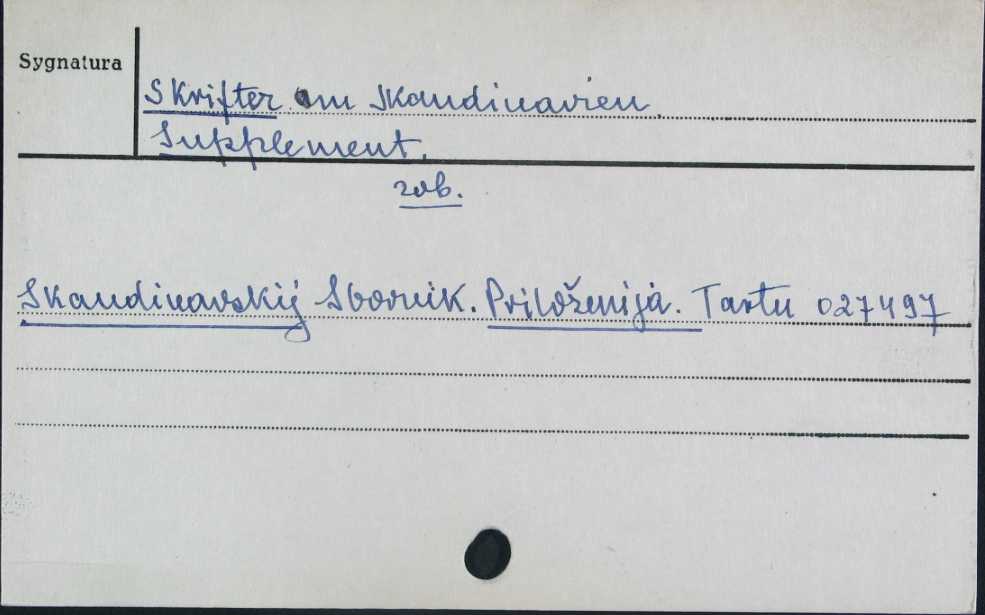 Sygnatura
Skrifter om Skandinavien
Supplement.
zob.
Skandinavskij Sbornik. Priloženija. Tartu 027497